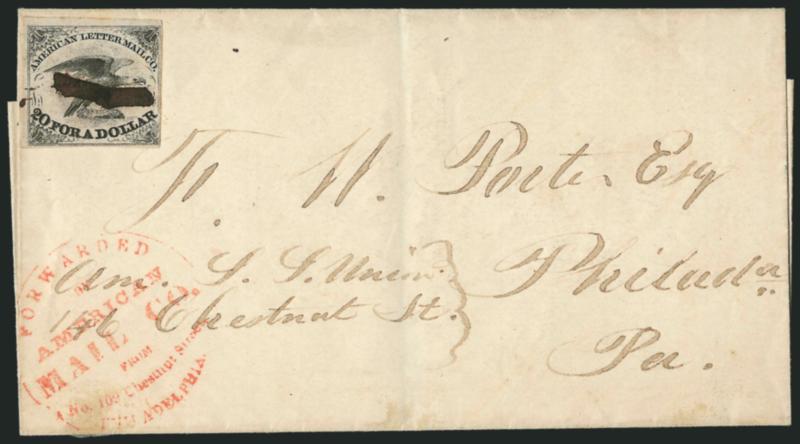 AMERICAN LETTER MAIL CO.
20 FOR A DOLLAR
T. W. Porter Esq
Am. S. S. Union
146 Chestnut St.
Philada
Pa.
FORWARDED
BY
AMERICAN
MAIL CO.
FROM
No. 109 Chestnut Street
PHILADELPHIA.